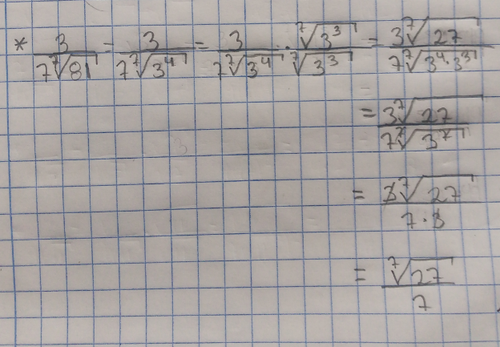 * 3/(7⁷√81) = 3/(7⁷√3⁴) = 3/(7⁷√3⁴) · ⁷√3³/⁷√3³ = 3⁷√27/(7⁷√3⁴·3³)
= 3⁷√27/(7⁷√3⁷)
= 3⁷√27/(7·3)
= ⁷√27/7